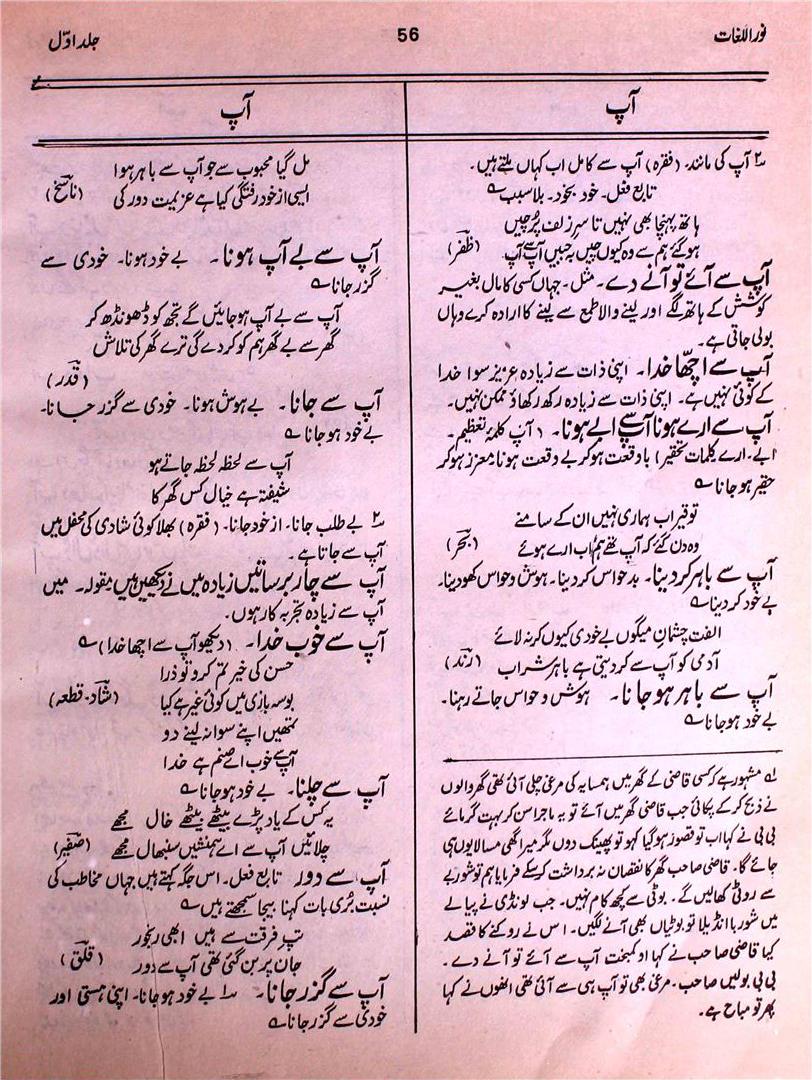 نور اللغات
56
جلد اوّل
آپ
۲؎ آپ کی مانند۔ (فقرہ) آپ سے کامل اب کہاں ملتے ہیں۔
تابع فعل۔ خود بخود۔ بلا سبب ؎
ہاتھ پہنچا بھی نہیں تا سرِ زلف پُرچیں
ہو گئے ہم سے وہ کیوں چیں بہ جبیں آپ سے آپ (ظفر)
آپ سے آئے تو آنے دے۔ مثل۔ جہاں کسی کا مال بغیر
کوشش کے ہاتھ لگے اور لینے والا طمع سے لینے کا ارادہ کرے وہاں
بولی جاتی ہے۔
آپ سے اچھّا خدا۔ اپنی ذات سے زیادہ عزیز سوا خدا
کے کوئی نہیں ہے۔ اپنی ذات سے زیادہ رکھ رکھاؤ ممکن نہیں۔
آپ سے ارے ہونا آپ سے ابے ہونا۔ (آپ کلمۂ تعظیم۔
ابے۔ ارے کلماتِ تحقیر) با وقعت ہو کر بے وقعت ہونا معزز ہو کر
حقیر ہو جانا ؎
توقیر اب ہماری نہیں ان کے سامنے
وہ دن گئے کہ آپ تھے ہم اب ارے ہوئے (بحر)
آپ سے باہر کر دینا۔ بدحواس کر دینا۔ ہوش و حواس کھو دینا۔
بے خود کر دینا ؎
الفت چشمانِ میگوں بے خودی کیوں کر نہ لائے
آدمی کو آپ سے کر دیتی ہے باہر شراب (رند)
آپ سے باہر ہو جانا۔ ہوش و حواس جاتے رہنا۔
بے خود ہو جانا ؎
۱؎ مشہور ہے کسی قاضی کے گھر میں ہمسایہ کی مرغی چلی آئی تھی گھر والوں
نے ذبح کر کے پکائی جب قاضی گھر میں آئے تو یہ ماجرا سن کر بہت گرمائے
بی بی نے کہا اب تو قصور ہو گیا کہو تو پھینک دوں مگر میرا گھی مسالا یوں ہی
جائے گا۔ قاضی صاحب گھر کا نقصان نہ برداشت کر سکے فرمایا ہم تو شوربے
سے روٹی کھالیں گے۔ بوٹی سے کچھ کام نہیں۔ جب لونڈی نے پیالے
میں شوربا انڈیلا تو بوٹیاں بھی آنے لگیں۔ اس نے روکنے کا قصد
کیا قاضی صاحب نے کہا او کمبخت آپ سے آئے تو آنے دے۔
بی بی بولیں صاحب۔ مرغی بھی تو آپ ہی سے آئی تھی انھوں نے کہا
پھر تو مباح ہے۔
آپ
مل گیا محبوب سے جو آپ سے باہر ہوا
ایسی از خود رفتگی کیا ہے عزیمت دور کی (ناسخ)
آپ سے بے آپ ہونا۔ بے خود ہونا۔ خودی سے
گزر جانا ؎
آپ سے بے آپ ہو جائیں گے تجھ کو ڈھونڈھ کر
گھر سے بے گھر ہم کو کردے گی ترے گھر کی تلاش
(قدر)
آپ سے جانا۔ بے ہوش ہونا۔ خودی سے گزر جانا۔
بے خود ہو جانا ؎
آپ سے لحظہ لحظہ جاتے ہو
شیفتہ ہے خیال کس گھر کا
۲؎ بے طلب جانا۔ از خود جانا۔ (فقرہ) بھلا کوئی شادی کی محفل میں
آپ سے جاتا ہے۔
آپ سے چار برساتیں زیادہ میں نے دیکھیں ہیں مقولہ۔ میں
آپ سے زیادہ تجربہ کار ہوں۔
آپ سے خوب خدا۔ (دیکھو آپ سے اچھا خدا) ؎
حسن کی خیر تم کرو تو ذرا
بوسہ بازی میں کوئی غیر ہے کیا (شاد۔ قطعہ)
تمھیں اپنے سوا نہ لینے دو
آپ سے خوب اے صنم ہے خدا
آپ سے چلنا۔ بے خود ہو جانا ؎
یہ کس کے یاد پڑے بیٹھے بیٹھے خال مجھے
چلا میں آپ سے اے ہمنشیں سنبھال مجھے (صفیر)
آپ سے دور تابع فعل۔ اس جگہ کہتے ہیں جہاں مخاطب کی
نسبت بُری بات کہنا بیجا سمجھتے ہیں ؎
تپِ فرقت سے ہیں ابھی رنجور
جان پر بن گئی تھی آپ سے دور (قلق)
آپ سے گزر جانا۔ ۱؎ بے خود ہو جانا۔ اپنی ہستی اور
خودی سے گزر جانا ؎